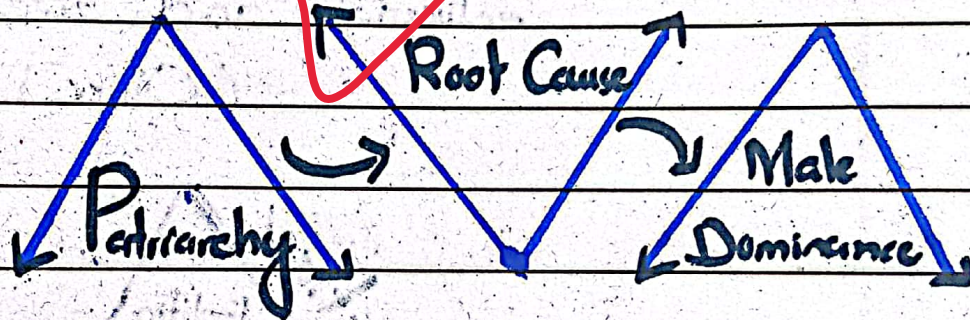 Patriarchy
Root Cause
Male
Dominance